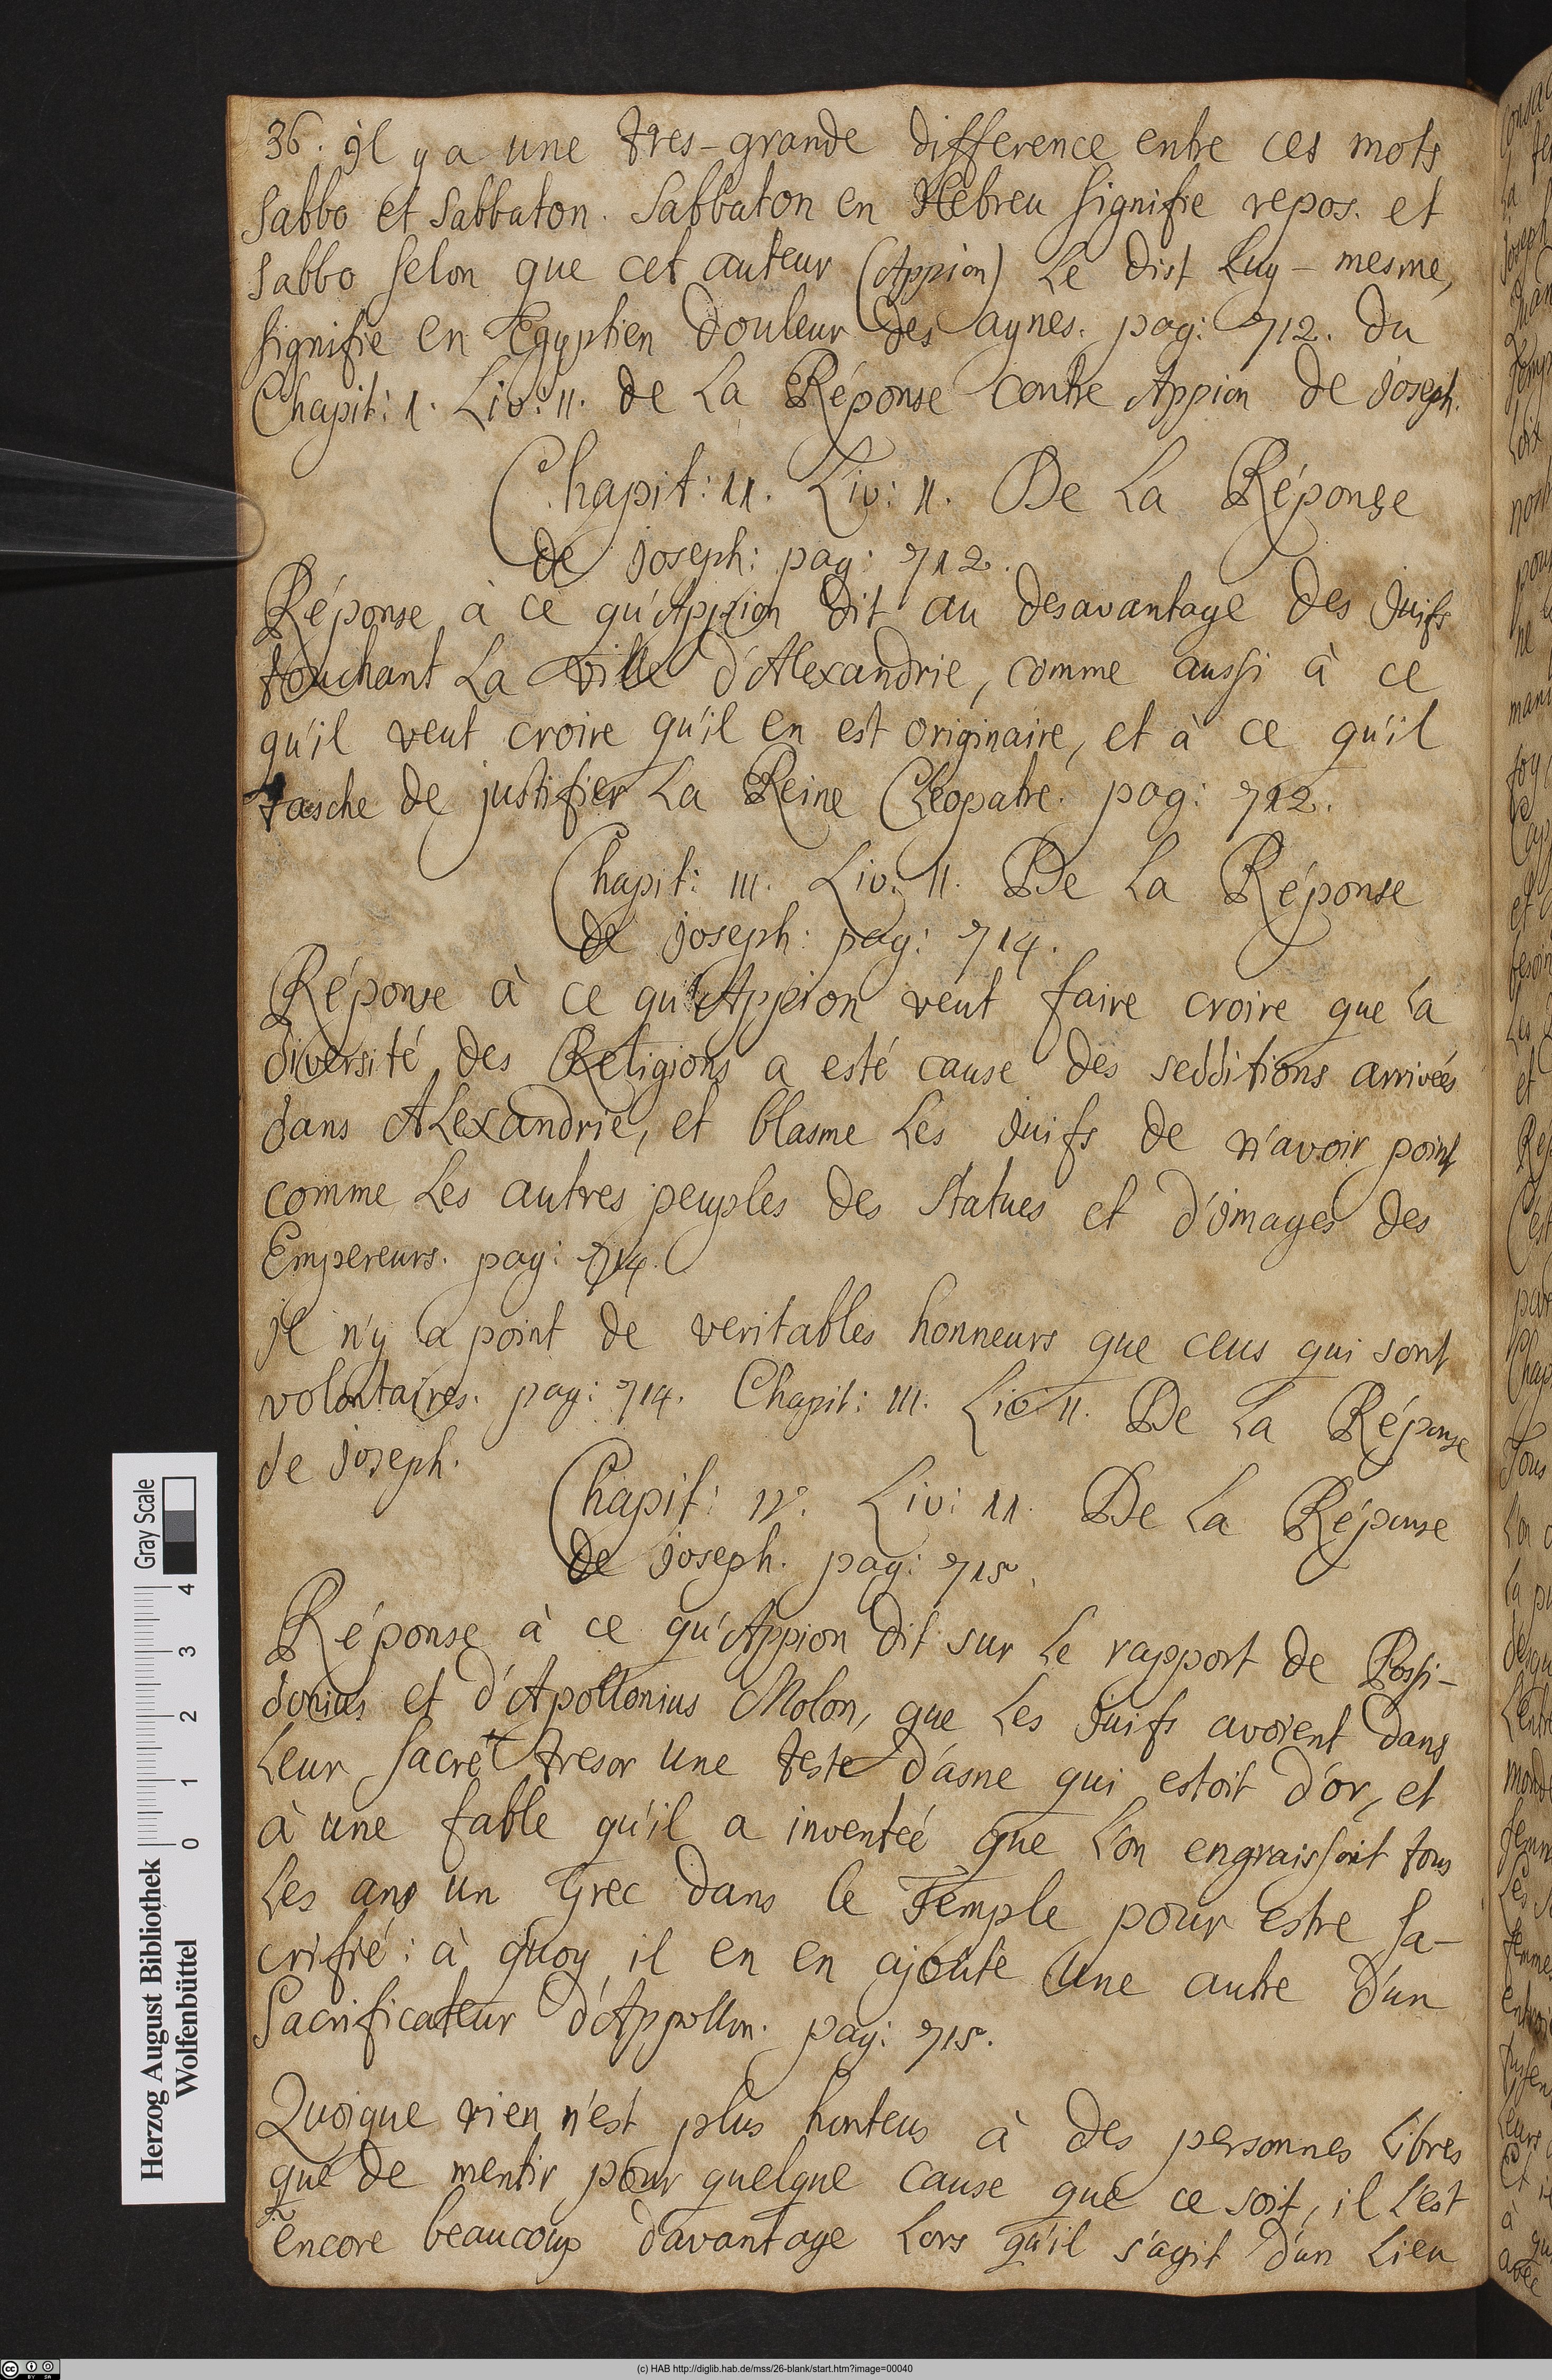 36. il y a une tres-grande difference entre ces mots
Sabbo et Sabbaton. Sabbaton en Hebreu signifie repos. et
Sabbo selon que cet auteur (Appion) Le dist Luy-mesme,
signifie en Egyptien douleur des aynes. pag: 712. du
Chapit: I. Liv: II. de La Réponse contre Appion de joseph.
Chapit: II. Liv: II. De La Réponse
de joseph: pag: 712.
Réponse à ce qu'Appion dit au desavantage des Juifs
touchant La ville d'Alexandrie, comme aussi à ce
qu'il veut croire qu'il en est originaire, et à ce qu'il
tasche de justifier La Reine Cléopatre. pag: 712.
Chapit: III. Liv: II. De La Réponse
de joseph: pag: 714.
Réponse à ce qu'Appion veut faire croire que la
diversité des Religions a esté cause des sedditions arrivées
dans ALexandrie, et blasme Les Juifs de n'avoir point
comme Les autres peuples des Statues et d'images des
Empereurs. pag: 714.
il n'y a point de veritables honneurs que ceus qui sont
volontaires. pag: 714. Chapit: III. Liv: II. De La Réponse
de joseph.
Chapit: IV. Liv: II. De La Réponse
de joseph. pag: 715.
Réponse à ce qu'Appion dit sur Le rapport de Possi-
donius et d'Apollonius Molon, que Les Juifs avoient dans
Leur sacré tresor une teste d'asne qui estoit d'or, et
à une fable qu'il a inventeé que L'on engraissoit tous
Les ans un Grec dans le Temple pour estre sa-
crifié: à quoy il en en ajoûte une autre d'un
Sacrificateur d'Appollon. pag: 715.
Quoique rien n'est plus honteus à des personnes Libres
que de mentir pour quelque cause que ce soit, il L'est
encore beaucoup davantage Lors qu'il s'agit d'un Lieu
Herzog August Bibliothek
Wolfenbüttel
0 1 2 3 4
Gray Scale
(c) HAB http://diglib.hab.de/mss/26-blank/start.htm?image=00040